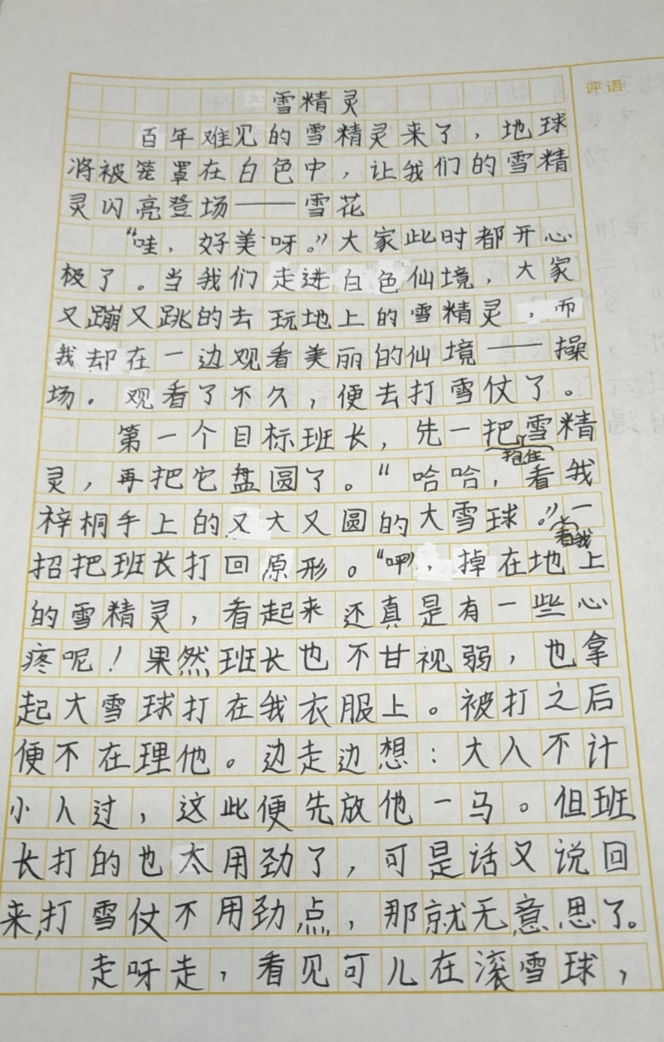 评语
雪精灵
百年难见的雪精灵来了，地球
将被笼罩在白色中，让我们的雪精
灵闪亮登场——雪花
“哇，好美呀。”大家此时都开心
极了。当我们走进白色仙境，大家
又蹦又跳的去玩地上的雪精灵，而
我却在一边观看美丽的仙境——操
场。观看了不久，便去打雪仗了。
第一个目标班长，先一把雪精
抱住
灵，再把它盘圆了。“哈哈，看我
梓桐手上的又大又圆的大雪球。”一
看我
招把班长打回原形。“呯”，掉在地上
的雪精灵，看起来还真是有一些心
疼呢！果然班长也不甘视弱，也拿
起大雪球打在我衣服上。被打之后
便不在理他。边走边想：大人不计
小人过，这此便先放他一马。但班
长打的也太用劲了，可是话又说回
来，打雪仗不用劲点，那就无意思了。
走呀走，看见可儿在滚雪球，